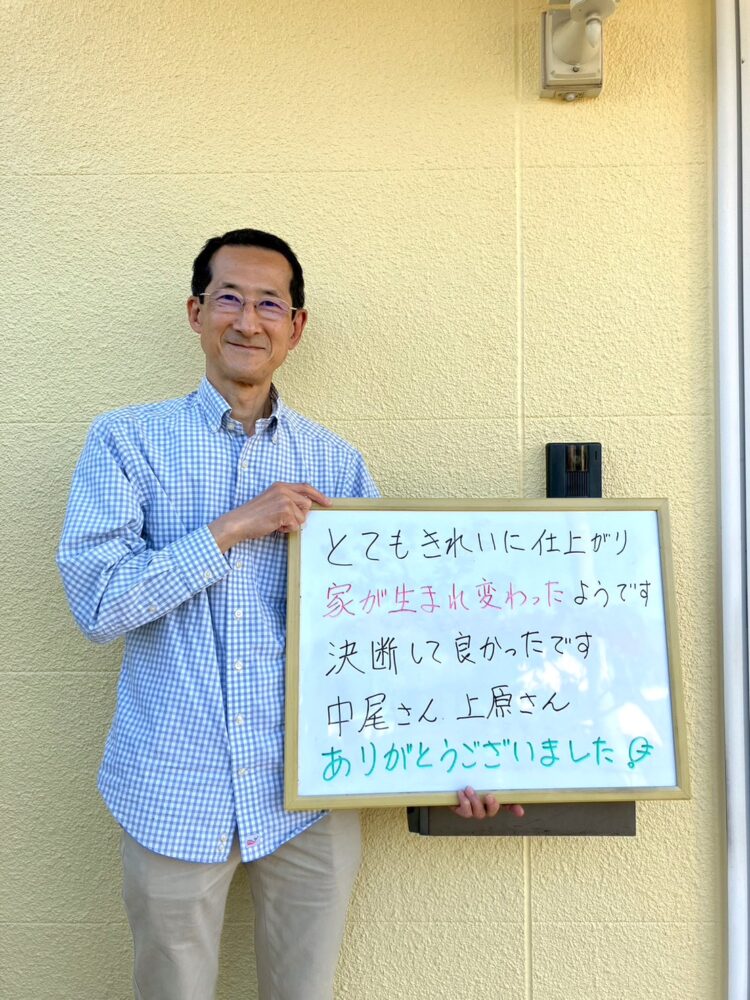 とてもきれいに仕上がり
家が生まれ変わったようです
決断して良かったです
中尾さん、上原さん
ありがとうございました!